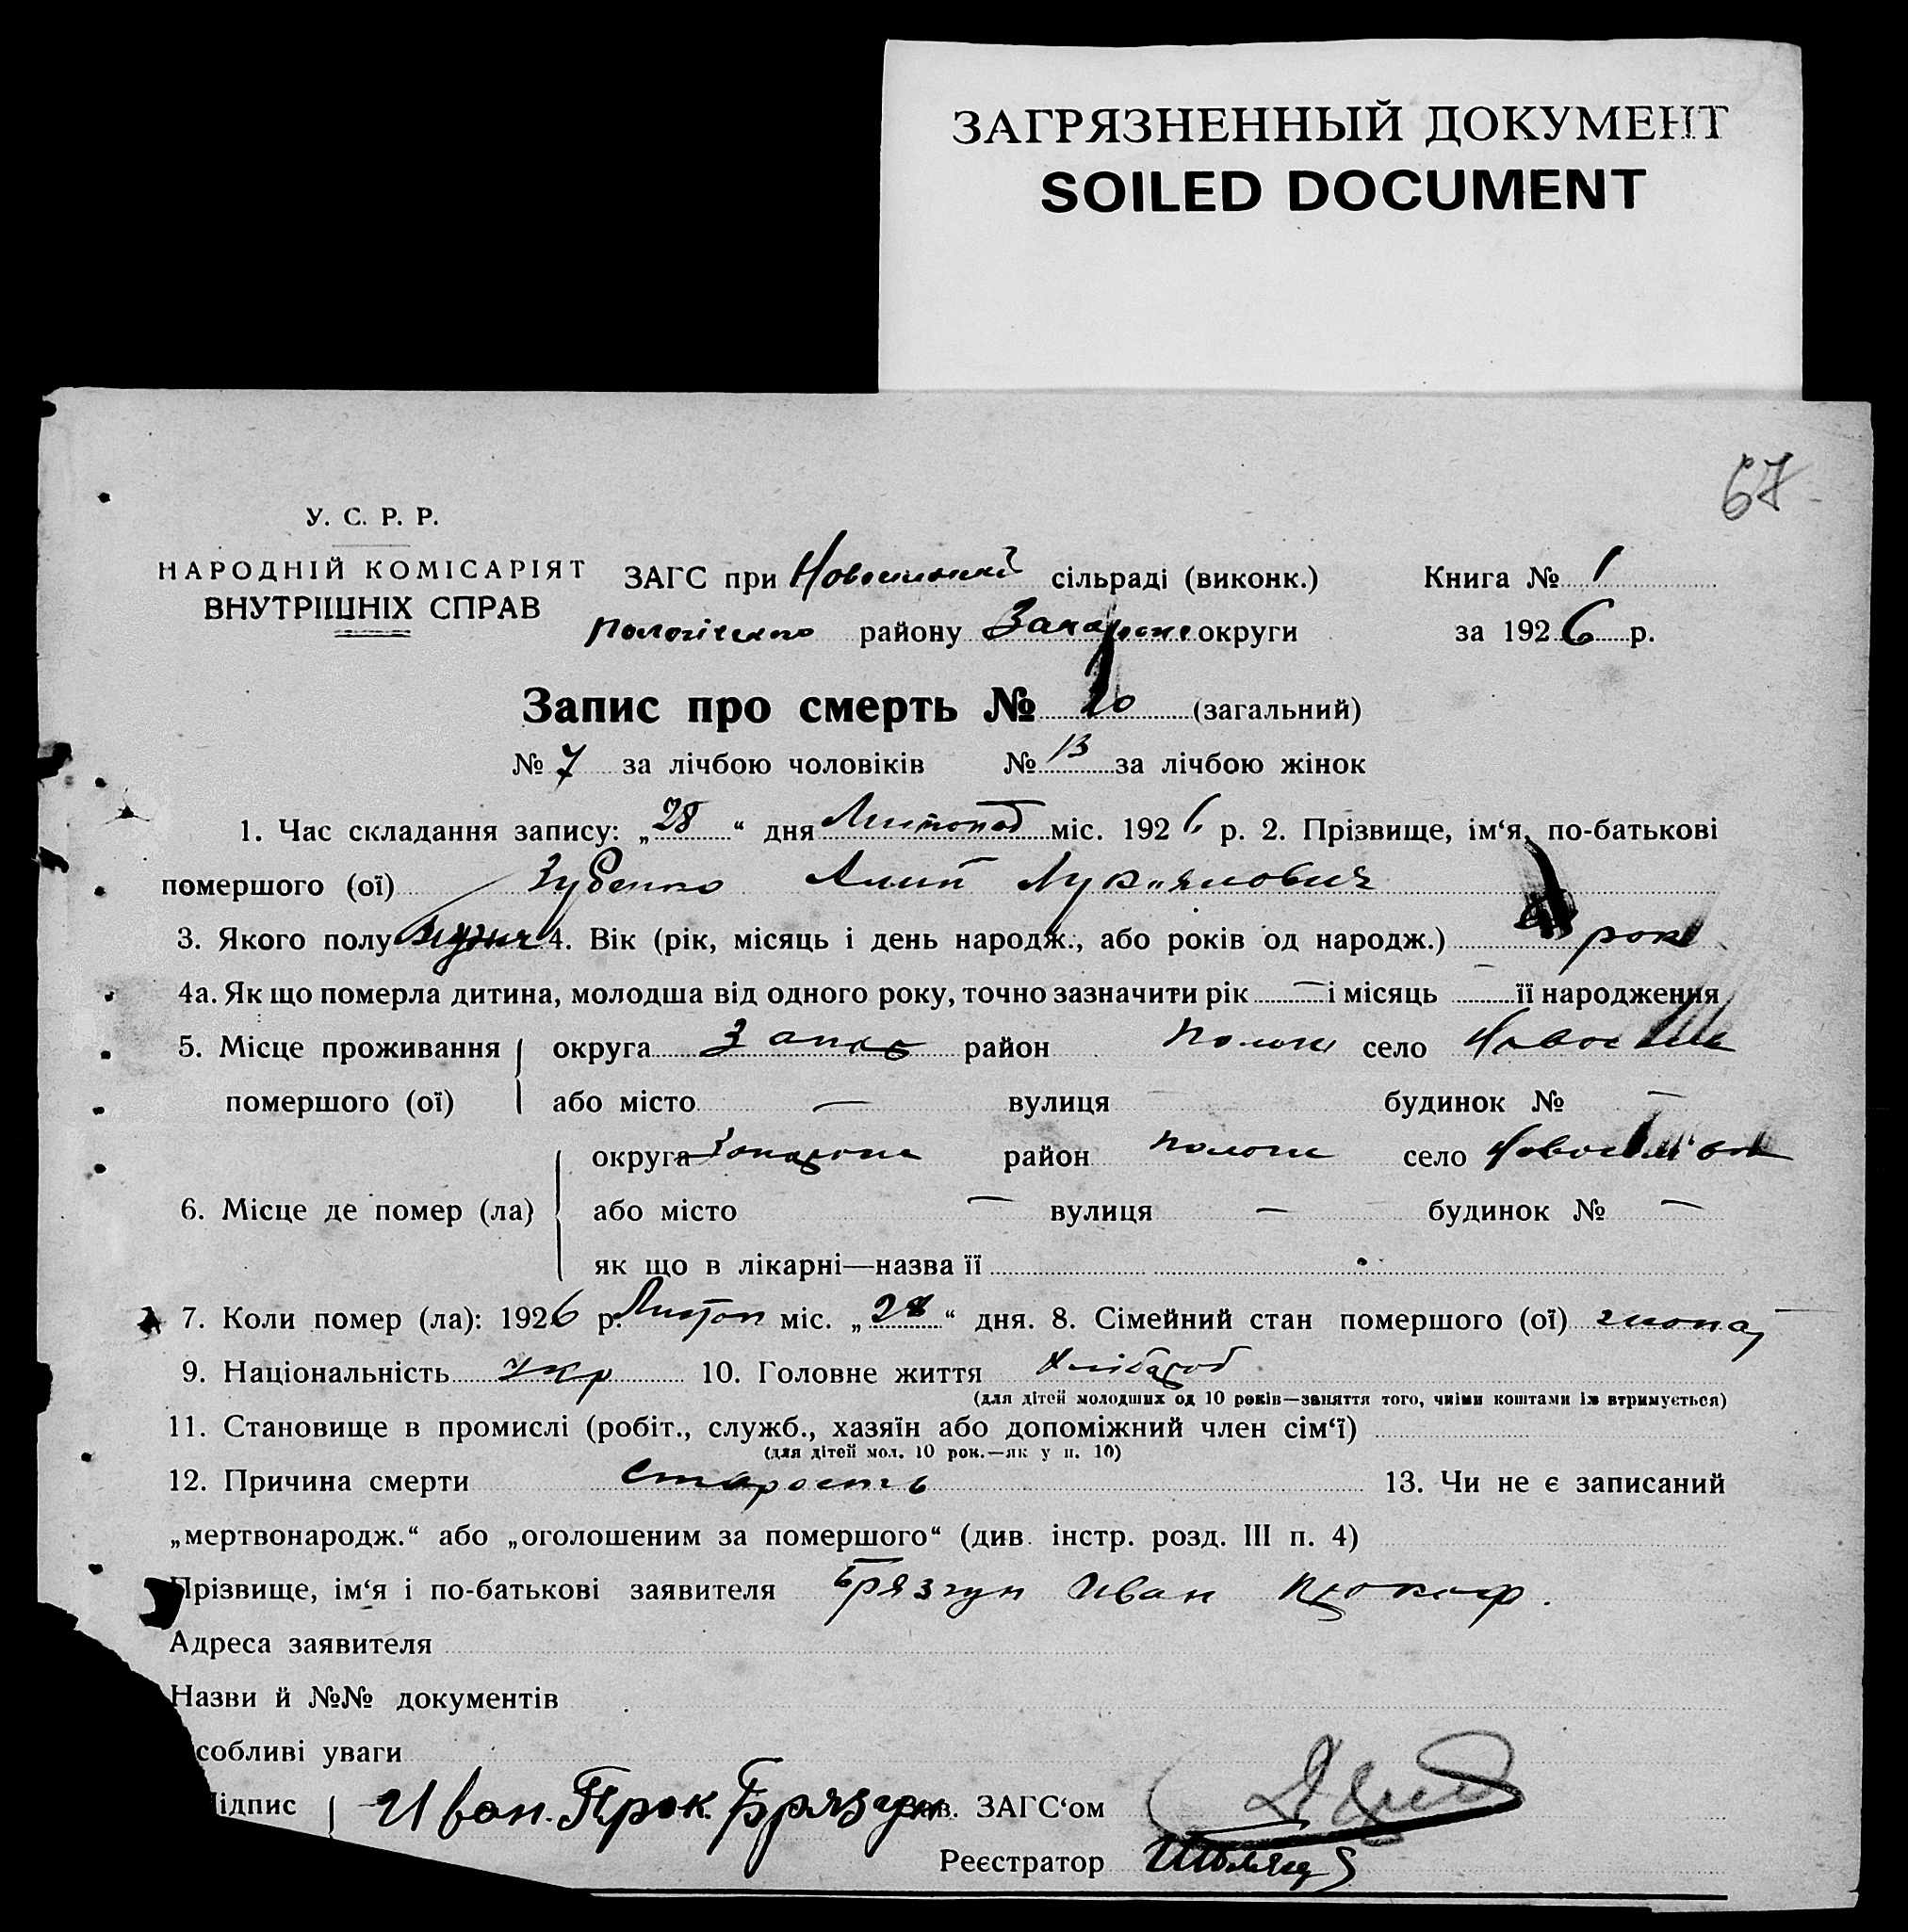 ЗАГРЯЗНЕННЫЙ ДОКУМЕНТ
SOILED DOCUMENT
67
У. С. Р. Р.
НАРОДНІЙ КОМІСАРІЯТ
ВНУТРІШНІХ СПРАВ
ЗАГС при сільраді (виконк.) Книга № 1
району округи за 1926 р.
Запис про смерть № 20 (загальний)
№ 7 за лічбою чоловіків № 13 за лічбою жінок
1. Час складання запису: „28“ дня Листопад міс. 1926 р. 2. Прізвище, ім‘я, по-батькові
помершого (ої) Зубенко Лук"янович
3. Якого полу 4. Вік (рік, місяць і день народж., або років од народж.) рок
4а. Як що померла дитина, молодша від одного року, точно зазначити рік — і місяць — її народження
5. Місце проживання округа Запор район Пологи село
помершого (ої) або місто — вулиця будинок № —
округа район Пологи село
6. Місце де помер (ла) або місто — вулиця — будинок № —
як що в лікарні—назва її
7. Коли помер (ла): 1926 р. Листоп міс. „28“ дня. 8. Сімейний стан помершого (ої)
9. Національність укр 10. Головне життя Хлібороб
(для дітей молодших од 10 років—заняття того, чиїми коштами їх втримується)
11. Становище в промислі (робіт., служб., хазяїн або допоміжний член сім‘ї)
(для дітей мол. 10 рок.—як у п. 10)
12. Причина смерти старость 13. Чи не є записаний
„мертвонародж.“ або „оголошеним за помершого“ (див. інстр. розд. III п. 4)
Прізвище, ім‘я і по-батькові заявителя Брязгун Иван Прокоф.
Адреса заявителя
Назви й №№ документів
собливі уваги
ідпис Иван. Прок. Брязгун Зав. ЗАГС‘ом
Реєстратор